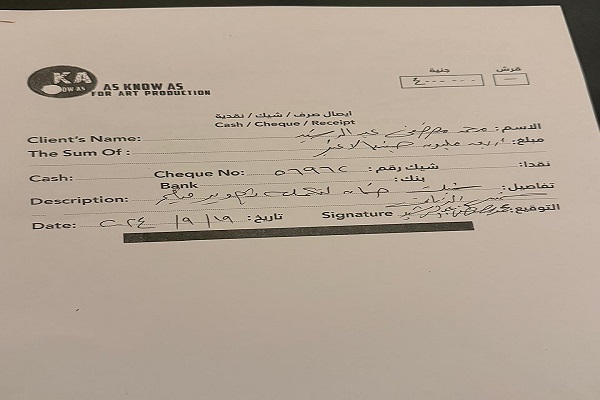 KA
OW AS
AS KNOW AS
FOR ART PRODUCTION
جنية
قرش
٤٠٠٠٠٠٠
—
ايصال صرف / شيك / نقدية
Cash / Cheque / Receipt
Client's Name: محمد مصطفى عبد الرشيد الاسم:
The Sum Of: أربعة مليون جنيها لا غير مبلغ:
Cash: Cheque No: ٥٦٩٦٢ شيك رقم: نقدا:
Bank بنك:
Description: شيك ضمان تصوير تفاصيل:
Date: ٢٠٢٤ / ٩ / ١٩ تاريخ: Signature محمد مصطفى عبد الرشيد التوقيع: